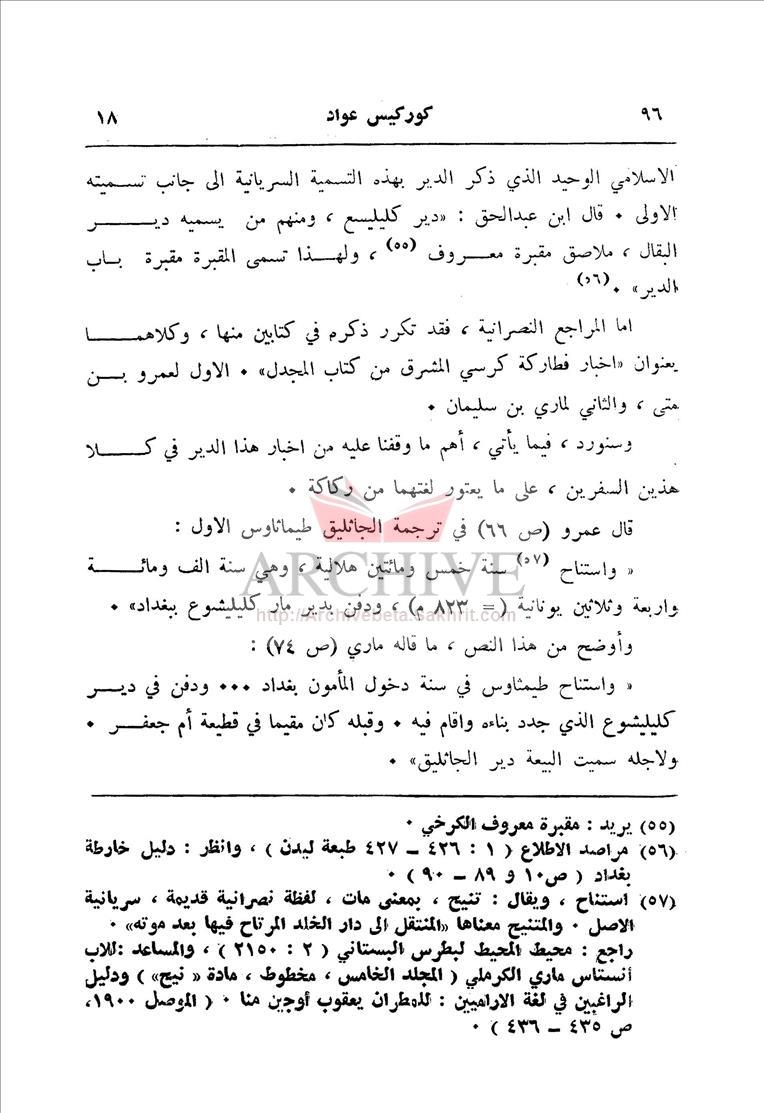 ٩٦ كوركيس عواد ١٨
الاسلامي الوحيد الذي ذكر الدير بهذه التسمية السريانية الى جانب تسميته
الاولى ٠ قال ابن عبدالحق : «دير كليليسع ، ومنهم من يسميه ديــر
البقال ، ملاصق مقبرة معــروف (٥٥) ، ولهــذا تسمى المقبرة مقبرة باب
الدير» ٠(٥٦)
اما المراجع النصرانية ، فقد تكرر ذكره في كتابين منها ، وكلاهمــا
يعنوان «اخبار فطاركة كرسي المشرق من كتاب المجدل» ٠ الاول لعمرو بــن
متى ، والثاني لماري بن سليمان ٠
وسنورد ، فيما يأتي ، أهم ما وقفنا عليه من اخبار هذا الدير في كــلا
هذين السفرين ، على ما يعتور لغتهما من ركاكة ٠
قال عمرو (ص ٦٦) في ترجمة الجاثليق طيماثاوس الاول :
« واستناح (٥٧) سنة خمس ومائتين هلالية ، وهي سنة الف ومائــة
واربعة وثلاثين يونانية (= ٨٢٣ م) ، ودفن بدير مار كليليشوع ببغداد» ٠
وأوضح من هذا النص ، ما قاله ماري (ص ٧٤) :
« واستناح طيمثاوس في سنة دخول المأمون بغداد ٠٠٠ ودفن في ديــر
كليليشوع الذي جدد بناءه واقام فيه ٠ وقبله كان مقيما في قطيعة أم جعفــر ٠
ولاجله سميت البيعة دير الجاثليق» ٠
(٥٥) يريد : مقبرة معروف الكرخي ٠
(٥٦) مراصد الاطلاع ( ١ : ٤٢٦ ــ ٤٢٧ طبعة ليدن ) ، وانظر : دليل خارطة
بغداد ( ص١٠ و ٨٩ ــ ٩٠ ) ٠
(٥٧) استناح ، ويقال : تنيح ، بمعنى مات ، لفظة نصرانية قديمة ، سريانية
الاصل ٠ والمتنيح معناها «المنتقل الى دار الخلد المرتاح فيها بعد موته» ٠
راجع : محيط المحيط لبطرس البستاني ( ٢ : ٢١٥٠ ) ، والمساعد :للاب
أنستاس ماري الكرملي ( المجلد الخامس ، مخطوط ، مادة « نيح» ) ودليل
الراغبين في لغة الاراميين : للمطران يعقوب أوجين منا ٠ ( الموصل ١٩٠٠،
ص ٤٣٥ ــ ٤٣٦ ) ٠
ARCHIVE
http://Archivebeta.Sakhrit.com